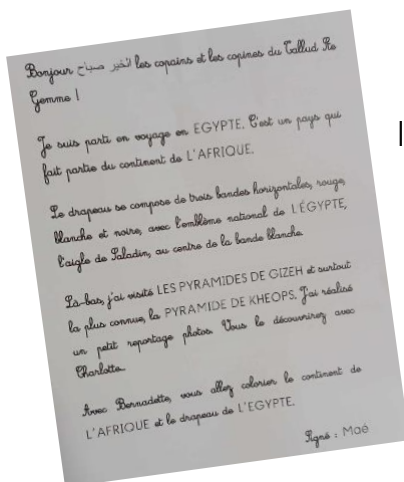 Bonjour صباح الخير les copains et les copines du Tallud Ste
Gemme !
Je suis parti en voyage en EGYPTE. C'est un pays qui
fait partie du continent de L'AFRIQUE.
Le drapeau se compose de trois bandes horizontales, rouge,
blanche et noire, avec l'emblème national de L'ÉGYPTE,
l'aigle de Saladin, au centre de la bande blanche.
Là-bas, j'ai visité LES PYRAMIDES DE GIZEH et surtout
la plus connue, la PYRAMIDE DE KHEOPS. J'ai réalisé
un petit reportage photos. Vous le découvrirez avec
Charlotte.
Avec Bernadette, vous allez colorier le continent de
L'AFRIQUE et le drapeau de L'EGYPTE.
Signé : Maé